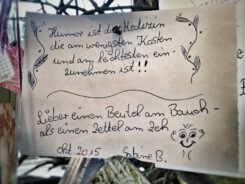 Humor ist die Medizin
die am wenigsten Kosten
und am leichtesten ein-
zunehmen ist!!
Lieber einen Beutel am Bauch -
als einen Zettel am Zeh
Okt. 2015 Sabine B.